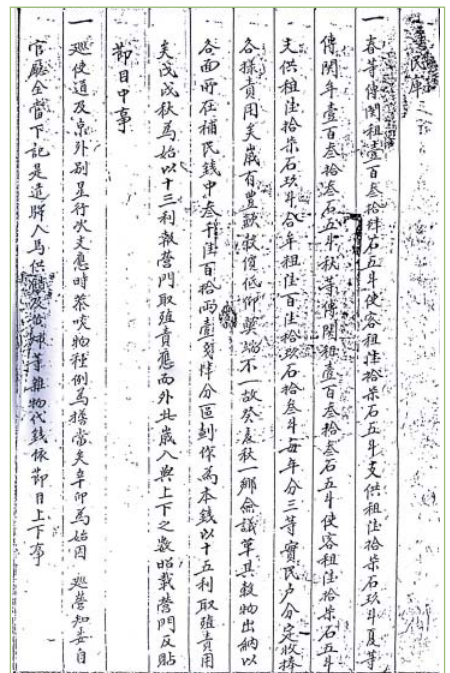 民庫
一 春等傳関租壹百叁拾肆石五斗使客租陸拾柒石五斗支供租陸拾柒石玖斗夏等
傳関年壹百叁拾叁石五斗秋等傳関租壹百叁拾叁石五斗使客租陸拾柒石五斗
支供租陸拾柒石玖斗合年租陸百陸拾玖石拾叁斗每年分三等實民戶分定收捧
各樣責用矣歲有豊歉穀價低仰獘端不一故癸辰秋一鄉僉議革其穀物出納以
各面所在補民錢中叁千陸百拾兩壹戔肆分區劃作為本錢以十五利取殖責用
矣戊戌秋為始以十三利報營門取殖責應而外此歲入與上下之数昭載營門反貼
節目中事
一 巡使道及京外別星行次支應時茶啖物種例為擔當矣辛卯為始因 巡營知委自
官廳全當下記是遣 人馬供饋及 等雜物代錢依節目上下事